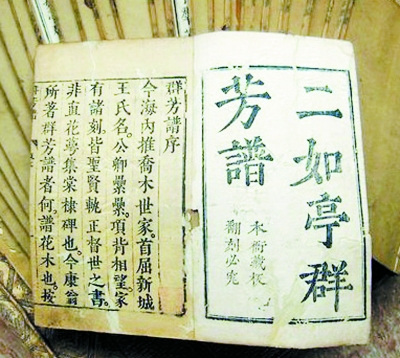 二如亭群
芳譜
本衙藏板
翻刻必究
群芳譜序
今海内推喬木世家。首屈新城
王氏名。公卿纍纍。項背相望。家
有諸刻。皆聖賢軌正督世之書。
非直花蕚集棠棣碑也。今康翁
所著群芳譜者何。譜花木也。按